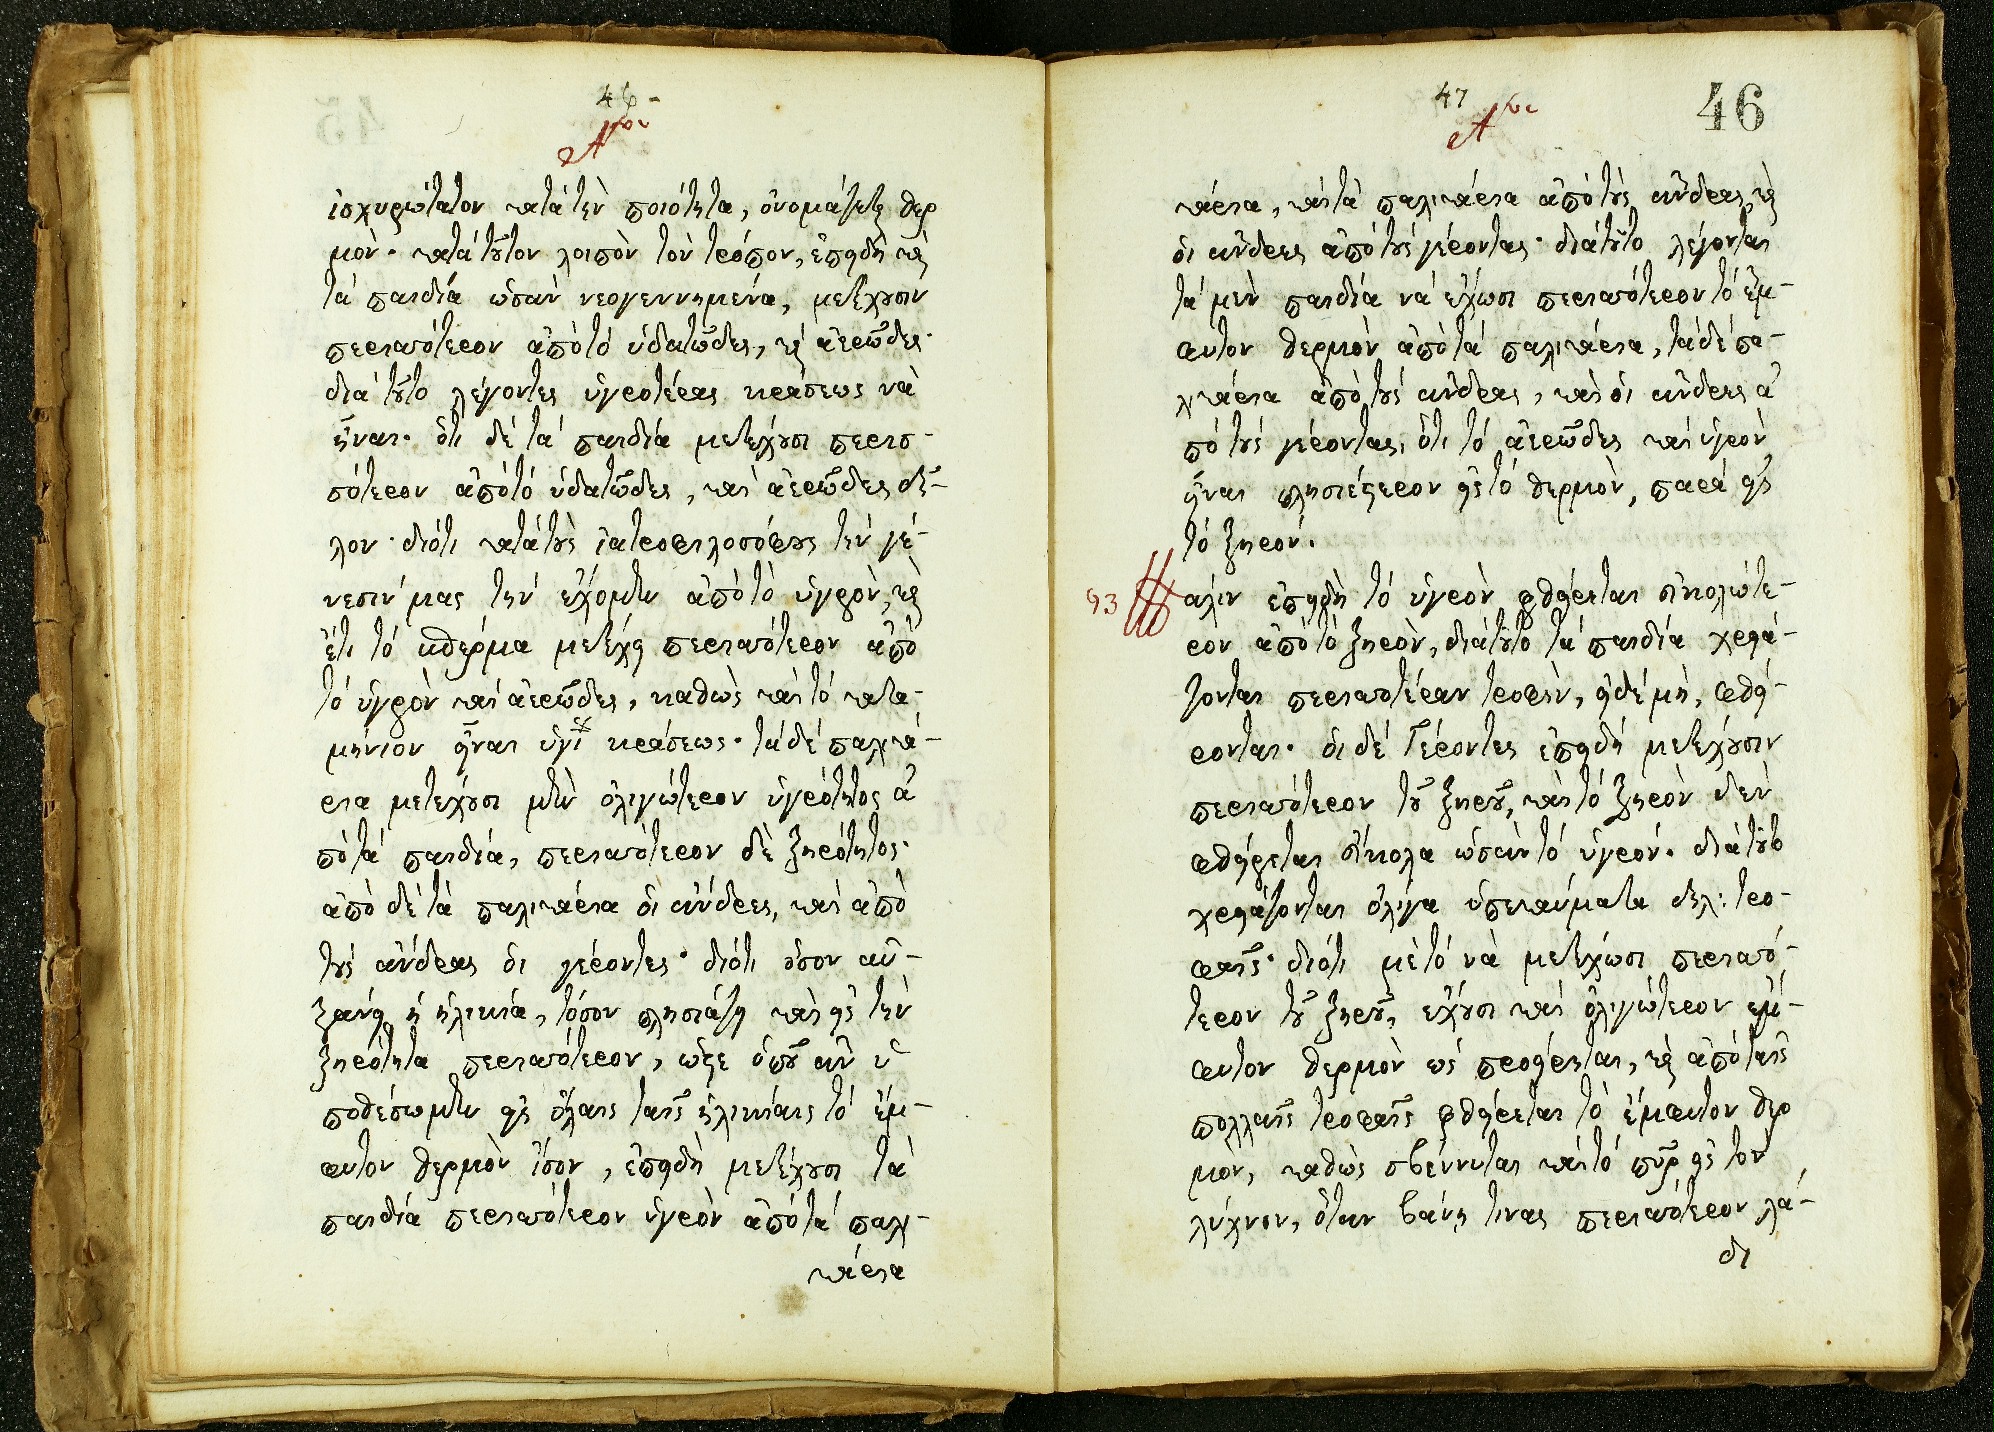 46
ἰσχυρώτατον κατὰ τὴν ποιότητα, ὀνομάζεται θερ
μὸν· κατὰ τοῦτον λοιπὸν τὸν τρόπον, ἐπειδὴ καὶ
τὰ παιδία ὡσὰν νεογεννημένα, μετέχουσιν
περισσότερον ἀπὸ τὸ ὑδατῶδες, καὶ ἀερῶδες·
διὰ τοῦτο λέγονται ὑγροτέρας κράσεως νὰ
εἶναι. ὅτι δὲ τὰ παιδία μετέχουσι περισ-
σότερον ἀπὸ τὸ ὑδατῶδες, καὶ ἀερῶδες δῆ-
λον· διότι κατὰ τοὺς ἰατροφιλοσόφους τὴν γέ-
νεσίν μας τὴν ἔχομεν ἀπὸ τὸ ὑγρὸν, καὶ
ἔτι τὸ σπέρμα μετέχει περισσότερον ἀπὸ
τὸ ὑγρὸν καὶ ἀερῶδες, καθὼς καὶ τὸ κατα-
μήνιον εἶναι κράσεως. τὰ δὲ παλικά-
ρια μετέχουσι μὲν ὀλιγώτερον ὑγρότητος ἀ
πὸ τὰ παιδία, περισσότερον δὲ ξηρότητος·
ἀπὸ δὲ τὰ παλικάρια οἱ ἄνδρες, καὶ ἀπὸ
τοὺς ἄνδρας οἱ γέροντες· διότι ὅσον αὐ-
ξάνει ἡ ἡλικία, τόσον πλησιάζει καὶ εἰς τὴν
ξηρότητα περισσότερον, ὥστε ὁποῦ ἂν ὑ
ποθέσωμεν εἰς ὅλαις ταῖς ἡλικίαις τὸ ἔμ-
φυτον θερμὸν ἴσον, ἐπειδὴ μετέχουσι τὰ
παιδία περισσότερον ὑγρὸν ἀπὸ τὰ παλι-
κάρια
47
46
κάρια, καὶ τὰ παλικάρια ἀπὸ τοὺς ἄνδρας, καὶ
οἱ ἄνδρες ἀπὸ τοὺς γέροντας· διὰ τοῦτο λέγονται
τὰ μὲν παιδία νὰ ἔχωσι περισσότερον τὸ ἔμ-
φυτον θερμὸν ἀπὸ τὰ παλικάρια, τὰ δὲ πα-
λικάρια ἀπὸ τοὺς ἄνδρας, καὶ οἱ ἄνδρες ἀ
πὸ τοὺς γέροντας, ὅτι τὸ ἀερῶδες καὶ ὑγρὸν
εἶναι πλησιέστερον εἰς τὸ θερμὸν, παρὰ εἰς
τὸ ξηρόν.
93 Πάλιν ἐπειδὴ τὸ ὑγρὸν φθείρεται εὐκολώτε-
ρον ἀπὸ τὸ ξηρὸν, διὰ τοῦτο τὰ παιδία χρειά-
ζονται περισσοτέραν τροφὴν, εἰ δὲ μὴ, φθεί-
ρονται. οἱ δὲ Γέροντες ἐπειδὴ μετέχουσιν
περισσότερον τοῦ ξηροῦ, καὶ τὸ ξηρὸν δὲν
φθείρεται εὔκολα ὡσὰν τὸ ὑγρόν. διὰ τοῦτο
χρειάζονται ὀλίγα ὑπεκκαύματα δηλ: τρο-
φαῖς· διότι μὲ τὸ νὰ μετέχωσι περισσό-
τερον τοῦ ξηροῦ, ἔχουσι καὶ ὀλιγώτερον ἔμ-
φυτον θερμὸν ὡς προείρηται, καὶ ἀπὸ ταῖς
πολλαῖς τροφαῖς φθείρεται τὸ ἔμφυτον θερ
μὸν, καθὼς σβέννυται καὶ τὸ πῦρ εἰς τὸν
λύχνον, ὅταν βάνῃ τινας περισσότερον λά-
δι